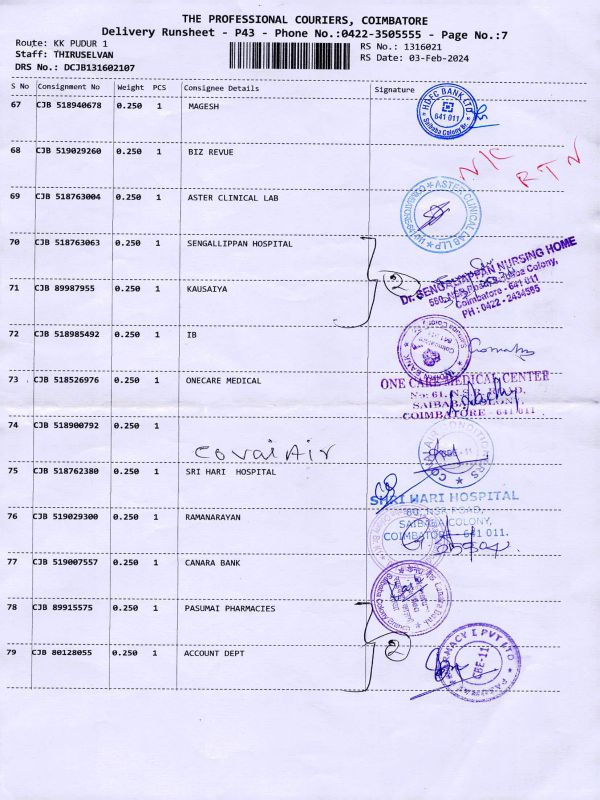 THE PROFESSIONAL COURIERS, COIMBATORE
Delivery Runsheet - P43 - Phone No.:0422-3505555 - Page No.:7
Route: KK PUDUR 1
RS No.: 1316021
Staff: THIRUSELVAN
RS Date: 03-Feb-2024
DRS No.: DCJB131602107
S No Consignment No Weight PCS Consignee Details Signature
67 CJB 518940678 0.250 1 MAGESH
HDFC BANK LTD
641 011
Saibaba Colony Br.
68 CJB 519029260 0.250 1 BIZ REVUE
N/C
RTN
69 CJB 518763004 0.250 1 ASTER CLINICAL LAB
ASTER CLINICAL LAB LLP
70 CJB 518763063 0.250 1 SENGALLIPPAN HOSPITAL
2
Dr. SENGALIAPPAN NURSING HOME
Colony,
Coimbatore - 641 011
PH : 0422 - 2434595
71 CJB 89987955 0.250 1 KAUSAIYA
72 CJB 518985492 0.250 1 IB
73 CJB 518526976 0.250 1 ONECARE MEDICAL
ONE CARE MEDICAL CENTER
No: 61, N.S.R. ROAD,
SAIBABA COLONY,
COIMBATORE - 641 011
74 CJB 518900792 0.250 1
Covai Air
75 CJB 518762380 0.250 1 SRI HARI HOSPITAL
SHRI HARI HOSPITAL
80, NSR ROAD,
SAIBABA COLONY,
COIMBATORE - 641 011.
76 CJB 519029300 0.250 1 RAMANARAYAN
77 CJB 519007557 0.250 1 CANARA BANK
Canara Bank
78 CJB 89915575 0.250 1 PASUMAI PHARMACIES
2
79 CJB 80128055 0.250 1 ACCOUNT DEPT
PHARMACY I PVT LTD
CBE-11